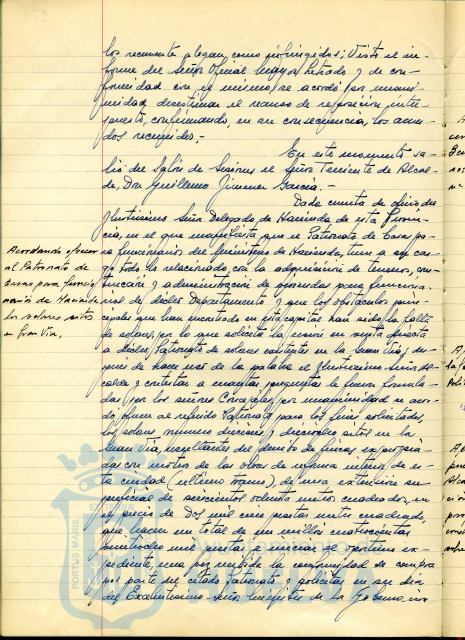 los recurrente alegan, como infringidos; Visto el in-
forme del Señor Oficial Mayor Letrado y de con-
formidad con el mismo, se acordó por unani-
midad, desestimar el recurso de reposición inter-
puesto, confirmando, en su consecuencia, los acuer-
dos recurridos.-
En este momento sa-
lió del Salón de Sesiones el Señor Teniente de Alcal-
de, Don Guillermo Jimenez Garcia.-
Dada cuenta de oficio del
Ilustrisimo Señor Delegado de Hacienda de esta Provin-
cia, en el que manifiesta que el Patronato de Casas pa-
ra funcionarios del Ministerio de Hacienda, tiene a su car-
go todo lo relacionado con la adquisición de terrenos, cons-
trucción y administración de viviendas para funcionarios
de dicho Departamento y que los obstáculos prin-
cipales que han encontrado en esta capital han sido la falta
de solares, por lo que solicita la cesión en venta directa
a dicho Patronato de solares existentes en la Gran Vía, des-
pués de hacer uso de la palabra el Ilustrisimo Señor Al-
calde y contestar a cuantas preguntas le fueron formula-
das por los señores Concejales, por unanimidad se acor-
dó ofrecer al referido Patronato para los fines solicitados,
los solares números dieciseis y dieciocho sitos en la
Gran Vía, resultantes del derribo de fincas expropia-
das con motivo de las obras de reforma interior de es-
ta ciudad (último tramo), de una extensión su-
perficial de seiscientos ochenta metros cuadrados, en
el precio de Dos mil cien pesetas metro cuadrado,
que hacen un total de un millón cuatrocientas
veintiocho mil pesetas e iniciar el oportuno ex-
pediente, una vez recibida la conformidad de compra
por parte del citado Patronato y solicitar en su dia
del Excelentisimo señor Ministro de la Gobernación
Acordando ofrecer
al Patronato de
Casas para funcio-
narios de Hacienda
los solares sitos
en Gran Vía.
PORTUS MARIS